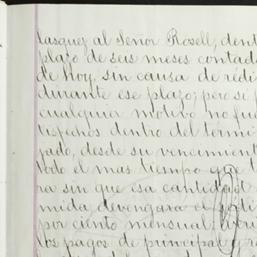 lasquez al Señor Rosell, dent
plazo de seis meses contad
de hoy, sin causa de rédi
durante ese plazo; pero si p
cualquier motivo no fue
dentro del térmi
desde su vencimient
todo el mas tiempo que t
ra sin que esa cantidad
devengará el rédi
por ciento mensual,
los pagos de principal y r